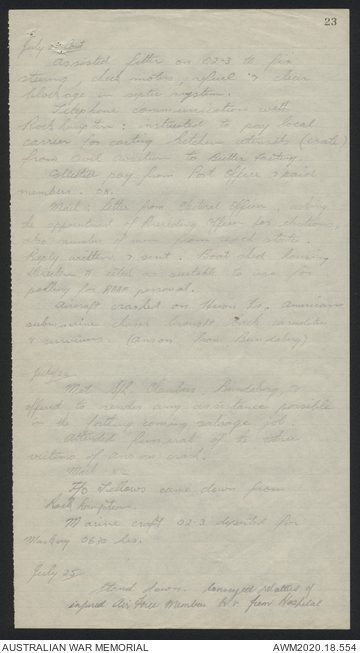 23
July
Assisted fitter on 02-3 to fix
steering, check motors, refuel & clear
blockage in septic system.
Telephone communication with
Rockhampton: instructed to pay local
carrier for carting kitchen utensils (crate)
from civil aviation to Butter factory.
Collected pay from Post Office & paid
members. OK.
Mail: letter from electoral officer, asking
the appointment of Presiding Officer for elections,
also number of men from each state.
Reply written & sent. Boat shed
suitable to use for
polling for RAAF personal.
Aircraft crashed on Is, American
submarine chaser brought back
& survivors. (Anson from Bundaberg)
July
Met Bundaberg
offered to render any assistance possible
in the forthcoming salvage job.
Attended funeral of three
victims of Anson crash.
F/O Fellows came down from
Rockhampton.
Marine craft 02-3 departed for
Mackay 0630 hrs.
July 25
Stand down. Conveyed relatives of
injured Air Force Members to & from Hospital
AUSTRALIAN WAR MEMORIAL
AWM2020.18.554